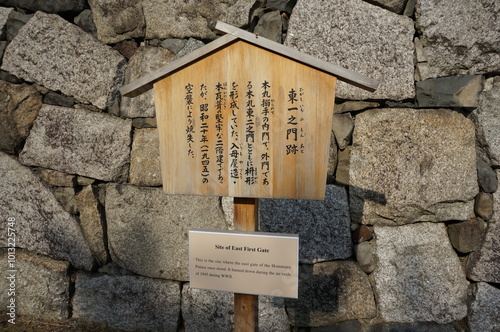 東一之門跡
ひがしいちのもんあと
本丸搦手の内門で、外門であ
る本丸東二之門とともに枡形
を形成していた。入母屋造・
本瓦葺の堅牢な二階建であっ
たが、昭和二十年(一九四五)の
空襲により焼失した。
Site of East First Gate
This is the site where the east gate of the Honmaru
Palace once stood. It burned down during the air raids
of 1945 during WWII.
Adobe Stock | #1013225748